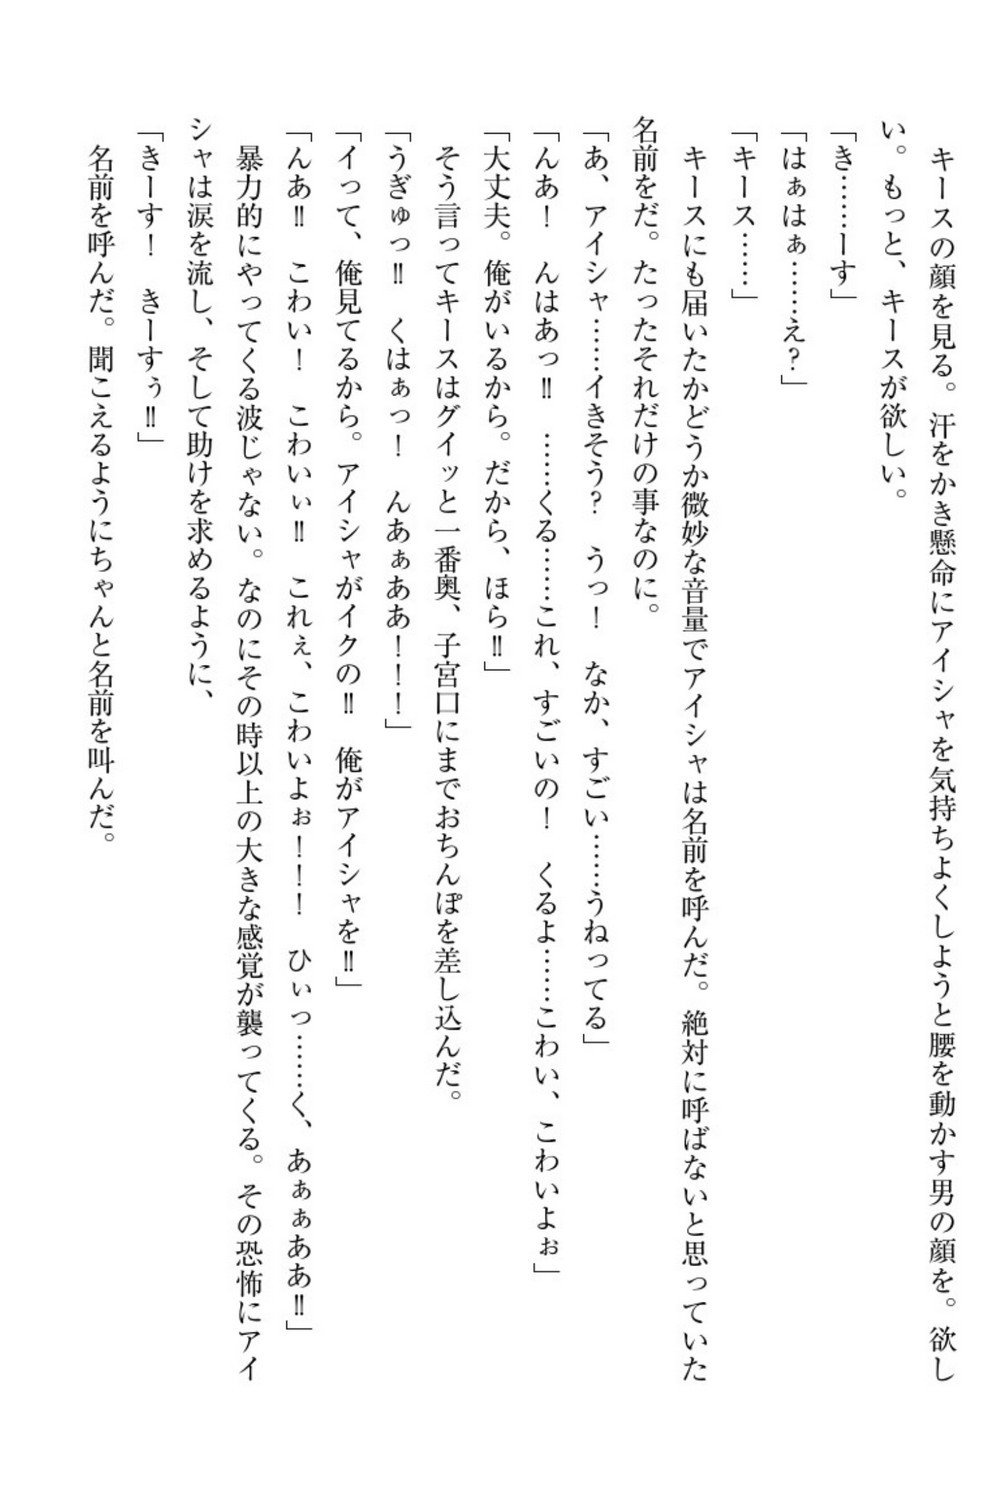 キースの顔を見る。汗をかき懸命にアイシャを気持ちよくしようと腰を動かす男の顔を。欲し
い。もっと、キースが欲しい。
「き……ーす」
「はぁはぁ……え？」
「キース……」
　キースにも届いたかどうか微妙な音量でアイシャは名前を呼んだ。絶対に呼ばないと思っていた
名前をだ。たったそれだけの事なのに。
「あ、アイシャ……イきそう？　うっ！　なか、すごい……うねってる」
「んあ！　んはあっ‼　……くる……これ、すごいの！　くるよ……こわい、こわいよぉ」
「大丈夫。俺がいるから。だから、ほら‼」
　そう言ってキースはグイッと一番奥、子宮口にまでおちんぽを差し込んだ。
「うぎゅっ‼　くはぁっ！　んあぁああ！！！」
「イって、俺見てるから。アイシャがイクの‼　俺がアイシャを‼」
「んあ‼　こわい！　こわいぃ‼　これぇ、こわいよぉ！！！　ひぃっ……く、あぁぁああ‼」
　暴力的にやってくる波じゃない。なのにその時以上の大きな感覚が襲ってくる。その恐怖にアイ
シャは涙を流し、そして助けを求めるように、
「きーす！　きーすぅ‼」
　名前を呼んだ。聞こえるようにちゃんと名前を叫んだ。